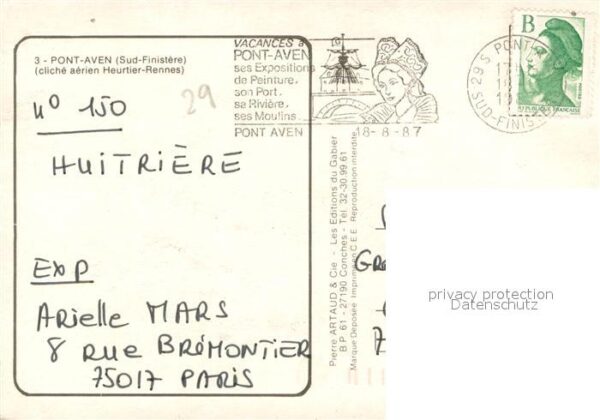 3 - PONT-AVEN (Sud-Finistère)
(cliché aérien Heurtier-Rennes)
N° 150
29
HUITRIÈRE
EXP
Arielle MARS
8 RUE BRÉMONTIER
75017 PARIS
VACANCES à
PONT-AVEN
ses Expositions
de Peinture,
son Port,
sa Rivière,
ses Moulins.
PONT AVEN
18-8-87
29 S PONT
SUD-FINIS
B
REPUBLIQUE FRANCAISE
Pierre ARTAUD & Cie - Les Editions du Gabier
BP 61 - 27190 Conches - Tél. 32-30.99.61
Marque Déposée Imprimé en C.E.E. Reproduction interdite
GR
7
privacy protection
Datenschutz